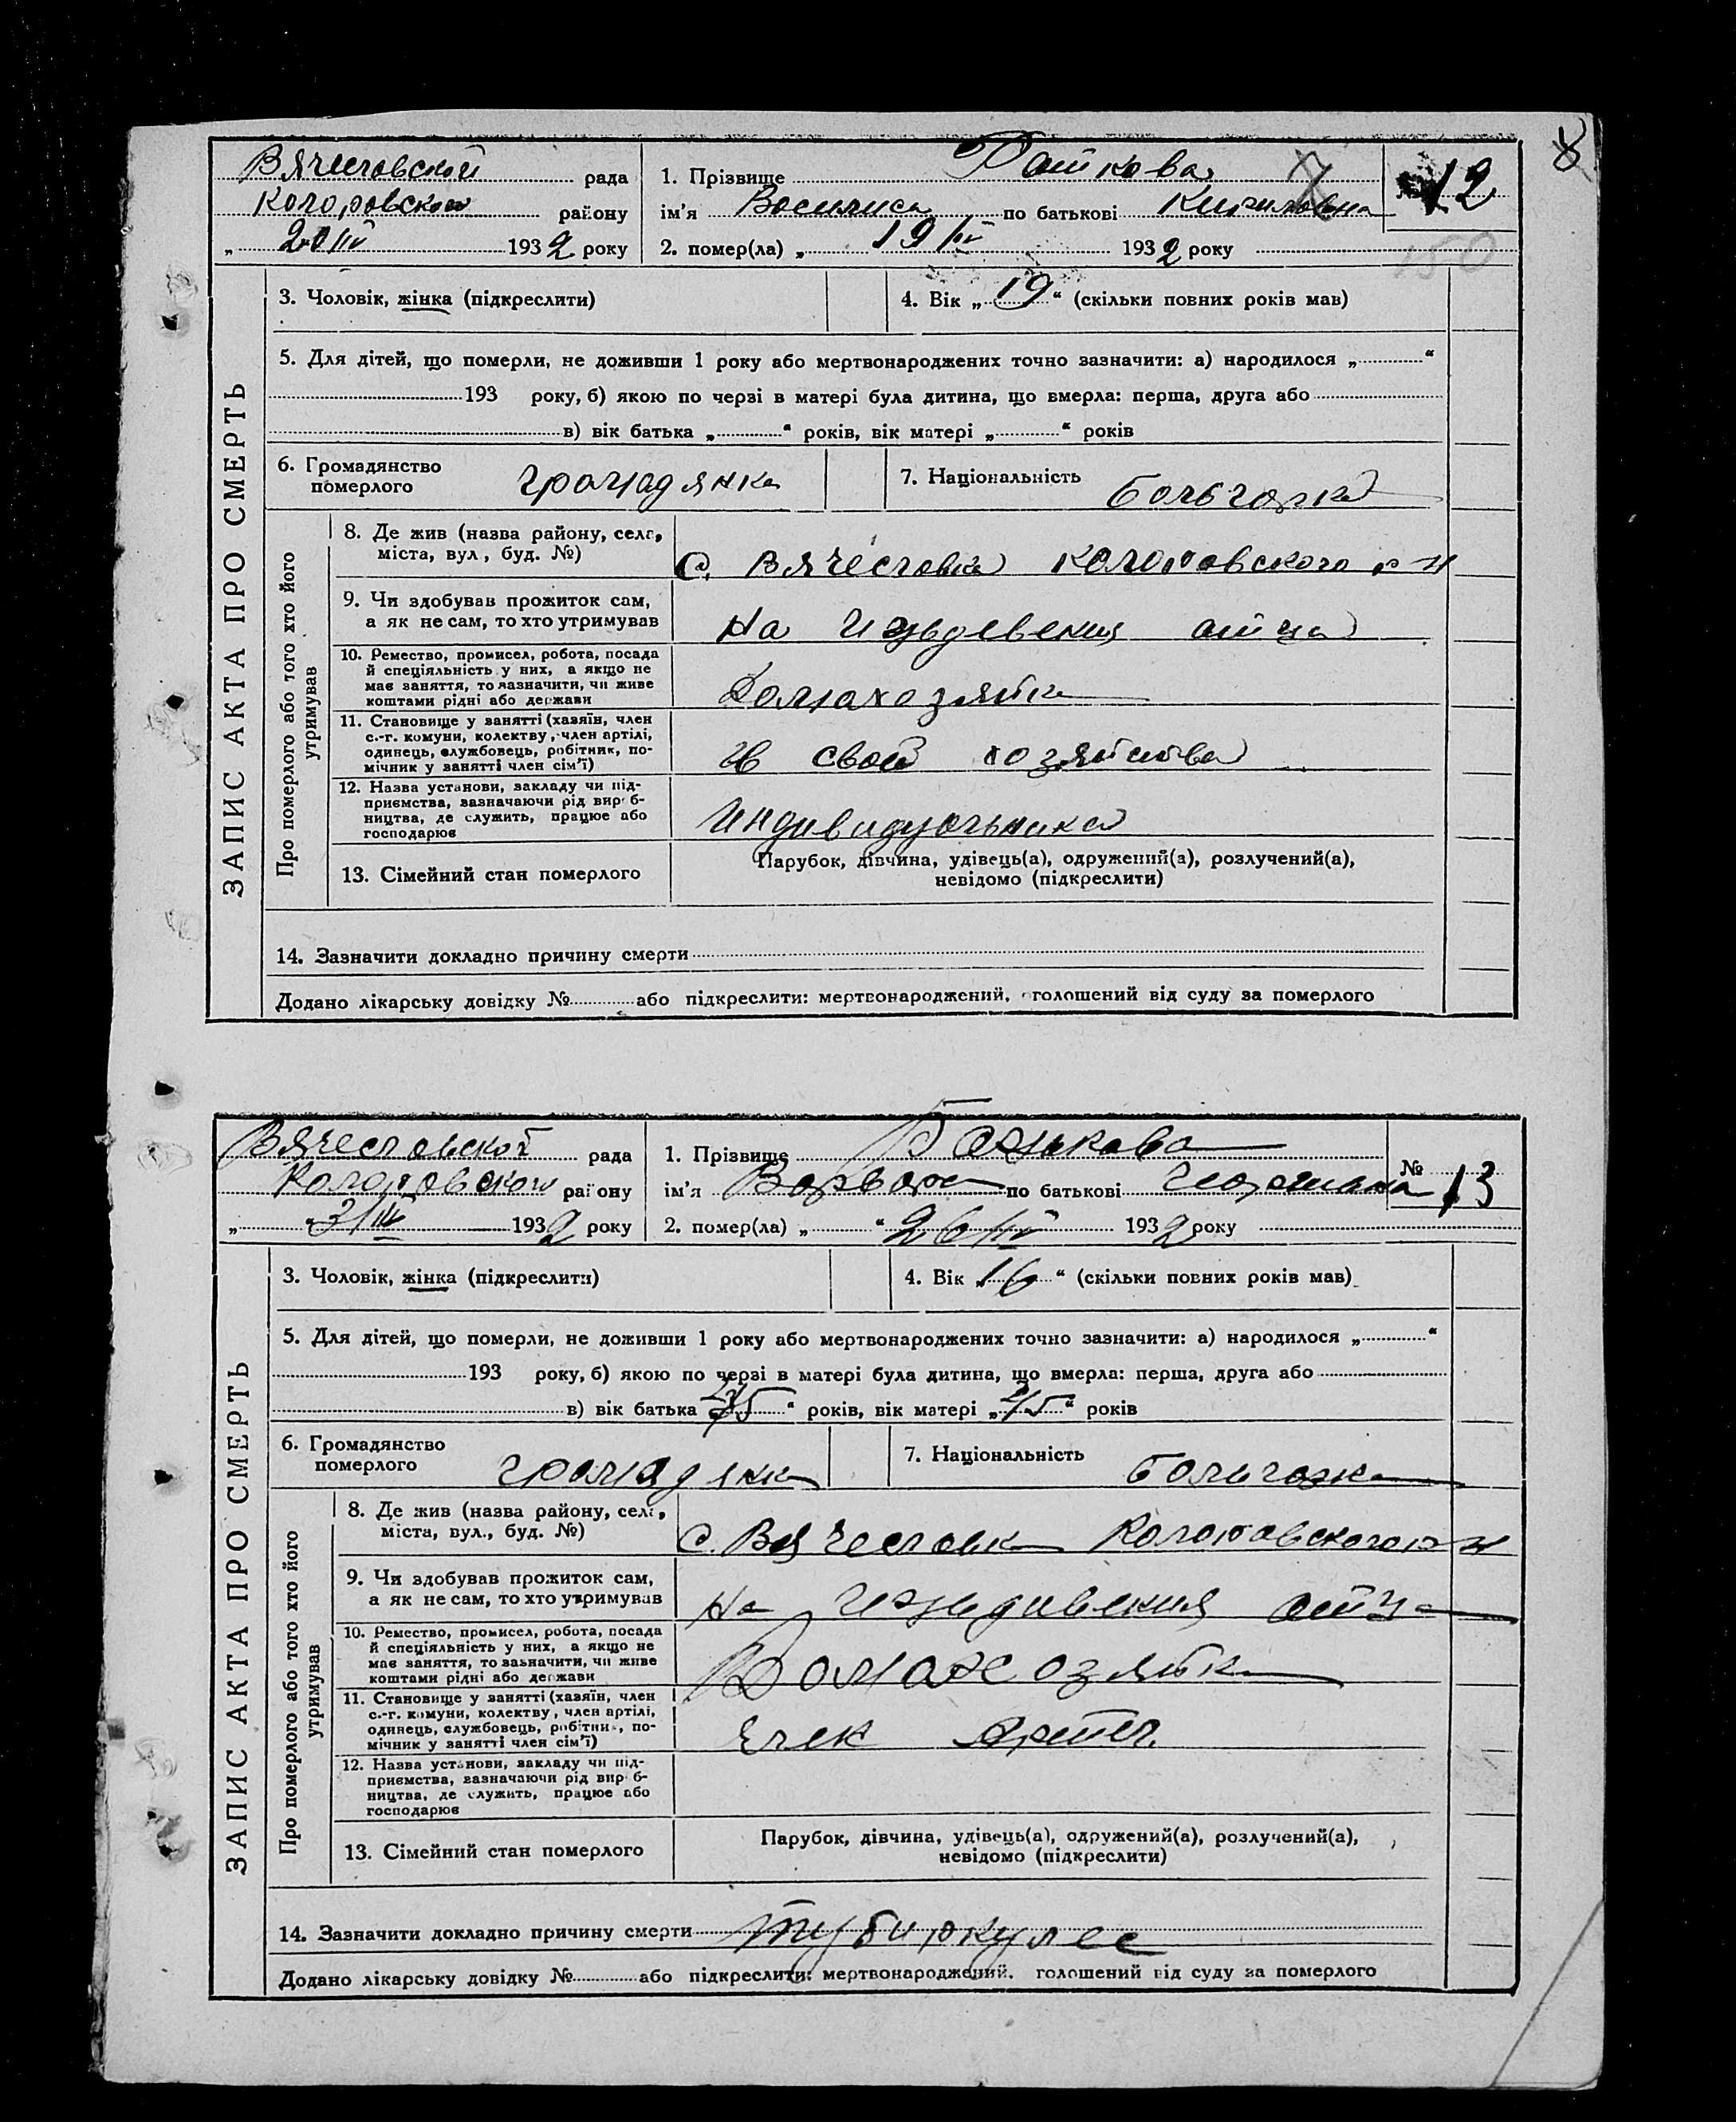 8
Вячеславской рада
Коларовского району
„ 20/IV 1932 року
1. Прізвище Райкова
ім’я Василиса по батькові Кирилловна
№ 12
2. помер(ла) „ 19/IV 1932 року
150
ЗАПИС АКТА ПРО СМЕРТЬ
3. Чоловік, жінка (підкреслити)
4. Вік „ 19 “ (скільки повних років мав)
5. Для дітей, що померли, не доживши 1 року або мертвонароджених точно зазначити: а) народилося „ “
193 року, б) якою по черзі в матері була дитина, що вмерла: перша, друга або
в) вік батька „ “ років, вік матері „ “ років
6. Громадянство
померлого
громадянка
7. Національність
больгарка
Про померлого або того хто його
утримував
8. Де жив (назва району, села,
міста, вул, буд. №)
с. Вячеславка Коларовского р-н
9. Чи здобував прожиток сам,
а як не сам, то хто утримував
На иждевения отца
10. Ремество, промисел, робота, посада
й спеціяльність у них, а якщо не
має заняття, то зазначити, чи живе
коштами рідні або держави
Домахозяйка
11. Становище у занятті (хазяїн, член
с.-г. комуни, колектву, член артілі,
одинець, службовець, робітник, по-
мічник у занятті член сім’ї)
свой хозяйства
12. Назва установи, закладу чи під-
приємства, зазначаючи рід вироб-
ництва, де служить, працює або
господарює
Индивидуальника
13. Сімейний стан померлого
Парубок, дівчина, удівець(а), одружений(а), розлучений(а),
невідомо (підкреслити)
14. Зазначити докладно причину смерти
Додано лікарську довідку № або підкреслити: мертвонароджений, оголошений від суду за померлого
Вячеславской рада
Коларовского району
„ 31/IV 1932 року
1. Прізвище
ім’я Варвара по батькові
№ 13
2. помер(ла) „ “ 26/IV 1932 року
ЗАПИС АКТА ПРО СМЕРТЬ
3. Чоловік, жінка (підкреслити)
4. Вік „ 16 “ (скільки повних років мав)
5. Для дітей, що померли, не доживши 1 року або мертвонароджених точно зазначити: а) народилося „ “
193 року, б) якою по черзі в матері була дитина, що вмерла: перша, друга або
в) вік батька „ 45 “ років, вік матері „ 45 “ років
6. Громадянство
померлого
громадянка
7. Національність
больгарка
Про померлого або того хто його
утримував
8. Де жив (назва району, села,
міста, вул., буд. №)
с. Вячеславка Коларовского р-н
9. Чи здобував прожиток сам,
а як не сам, то хто утримував
На иждивения отца
10. Ремество, промисел, робота, посада
й спеціяльність у них, а якщо не
має заняття, то зазначити, чи живе
коштами рідні або держави
Домахозяйка
11. Становище у занятті (хазяїн, член
с.-г. комуни, колектву, член артілі,
одинець, службовець, робітник, по-
мічник у занятті член сім’ї)
Член Артел.
12. Назва установи, закладу чи під-
приємства, зазначаючи рід вироб-
ництва, де служить, працює або
господарює
13. Сімейний стан померлого
Парубок, дівчина, удівець(а), одружений(а), розлучений(а),
невідомо (підкреслити)
14. Зазначити докладно причину смерти тубиркулес
Додано лікарську довідку № або підкреслити: мертвонароджений, голошений від суду за померлого